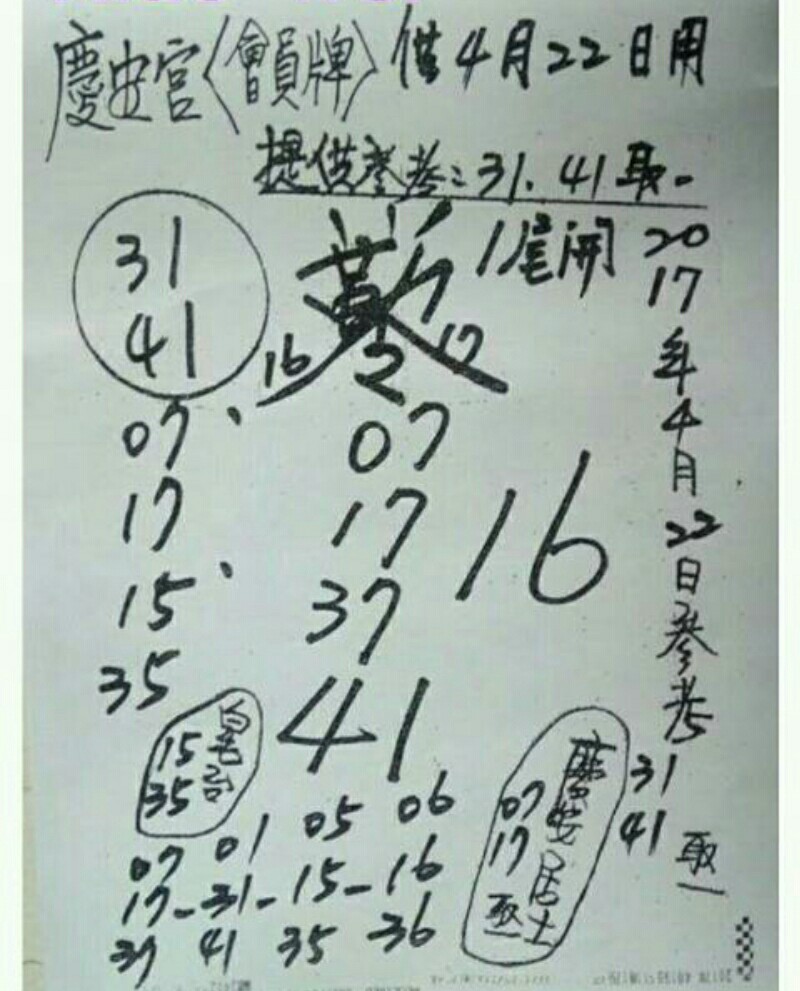 慶安宮〈會員牌〉供4月22日用
提供參考:31.41取一
1尾開
31
41
16 2 17
07、
17
15、
35
07
17
37
41
16
2017年4月22日參考
31
41
取一
15
35
慶安居士
07
17
取一
07 01 05 06
17-31-15-16
37 41 35 36